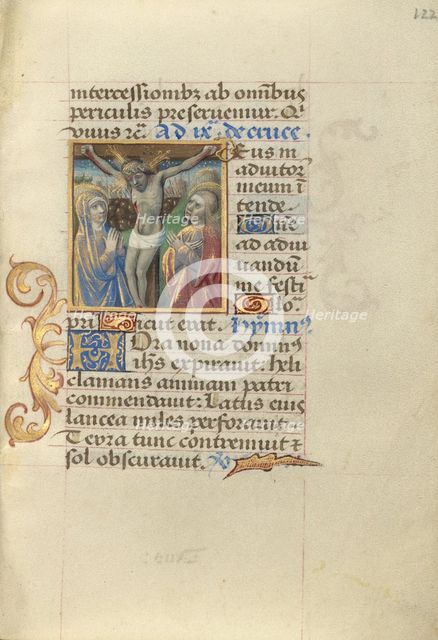 122
intercessionibz ab omnibus
periculis preseruemur. Q
viuus rc̄. Ad ix. de cruce.
Eus in
adiutor
meum ī
tende
Dn̄e
ad adiu
uandū
me festi
Glo.
pr̄i Sicut erat. hymnus.
Hora nona domin'
ihs expirauit: heli
clamans animam patri
commendauit: Latus eius
lancea miles perforauit
Terra tunc contremuit et
sol obscurauit.
Heritage
Heritage
Heritage
Heritage